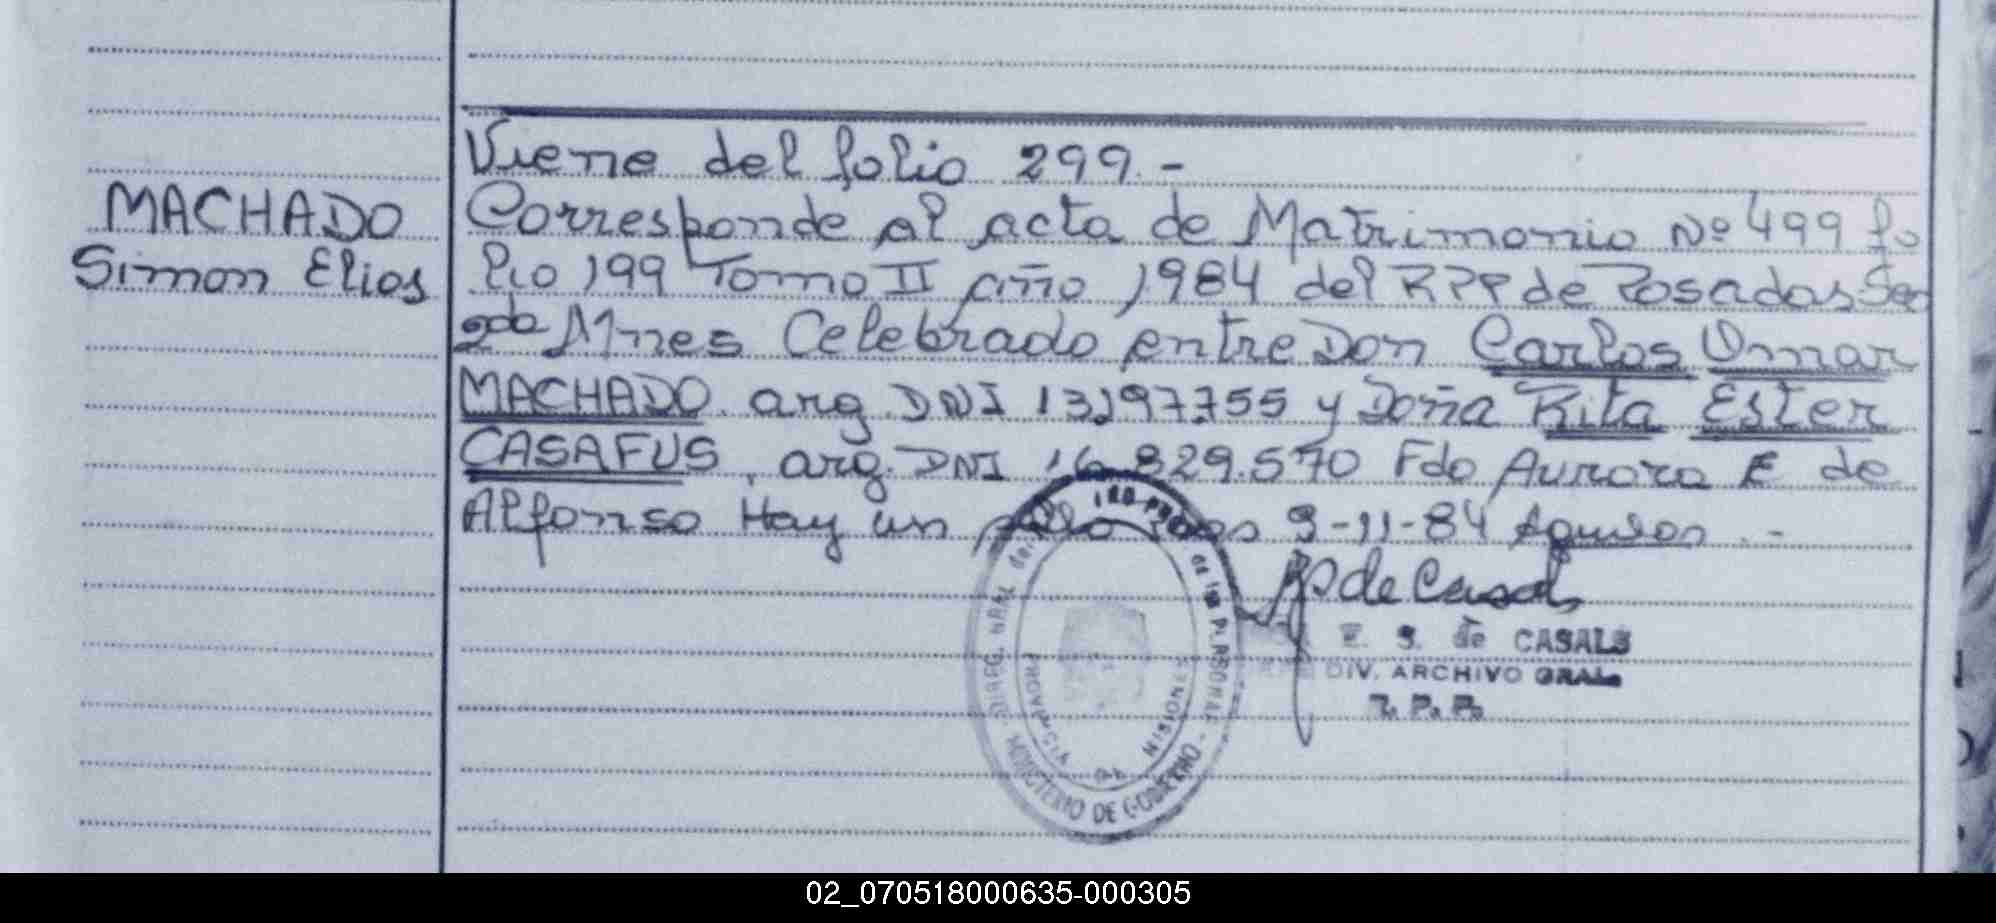 Viene del folio 299.-
MACHADO
Simon Elias
Corresponde al acta de Matrimonio Nº 499 fo
lio 199 Tomo II año 1984 del RPP de Posadas Sec
2da Mnes Celebrado entre Don Carlos Omar
MACHADO. arg. DNI 13197755 y Doña Rita Ester
CASAFUS, arg. DNI 16.829.570 Fdo Aurora E de
Alfonso Hay un sello 9-11-84
de Casals
E. S. de CASALS
DIV. ARCHIVO GRAL.
R. P. P.
de las PERSONAS
MINISTERIO DE GOBIERNO
PROVINCIA DE MISIONES
02_070518000635-000305